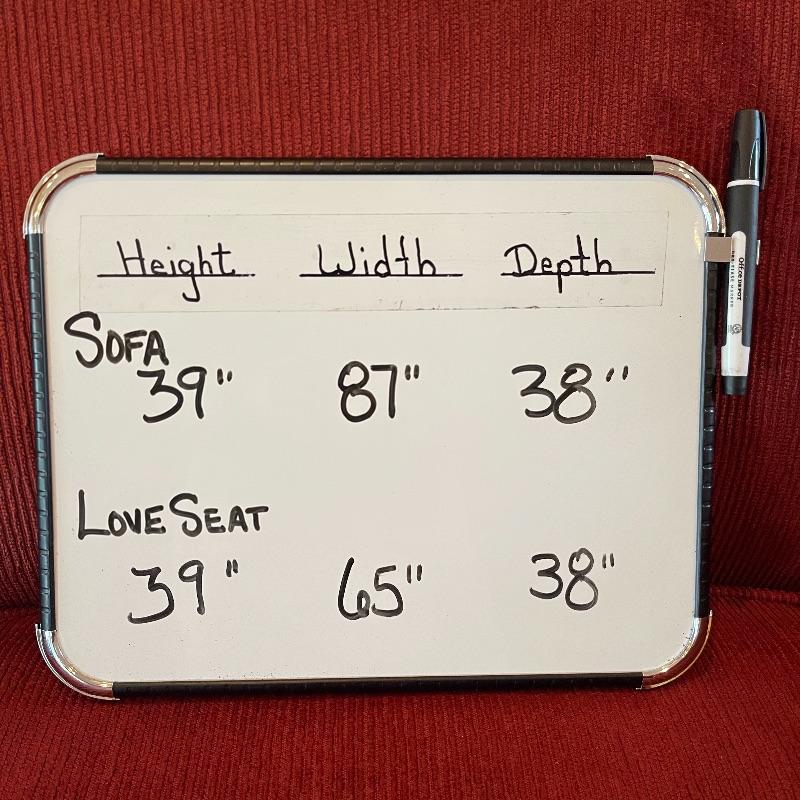 Height Width Depth
SOFA
39" 87" 38"
LOVE SEAT
39" 65" 38"
Office DEPOT